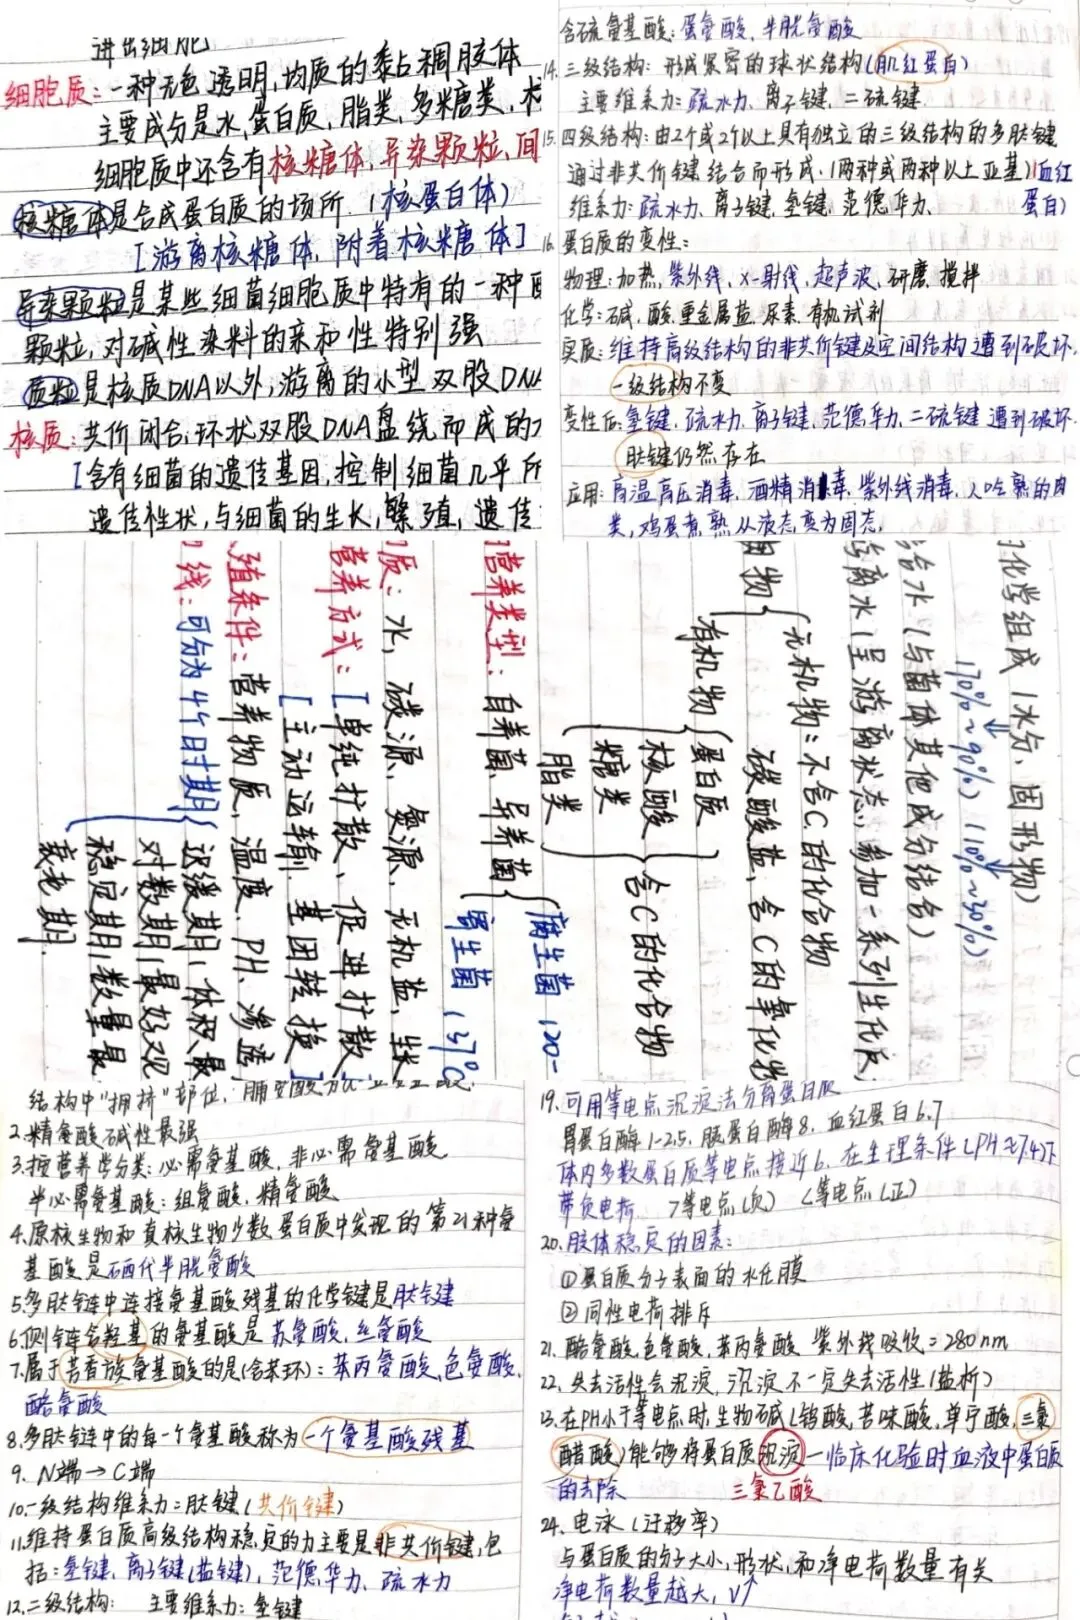 进出细胞
细胞质:一种无色透明,均质的黏稠胶体
主要成分是水,蛋白质,脂类,多糖类,核
细胞质中还含有核糖体,异染颗粒,间
核糖体是合成蛋白质的场所.(核蛋白体)
[游离核糖体,附着核糖体]
异染颗粒是某些细菌细胞质中特有的一种
颗粒,对碱性染料的亲和性特别强
质粒是核质DNA以外,游离的小型双股DNA
核质:共价闭合,环状双股DNA盘绕而成的
[含有细菌的遗传基因,控制细菌几乎所
遗传性状,与细菌的生长,繁殖,遗传
含硫氨基酸:蛋氨酸、半胱氨酸
14.三级结构:形成紧密的球状结构(肌红蛋白)
主要维系力:疏水力、离子键、二硫键
15.四级结构:由2个或2个以上具有独立的三级结构的多肽键
通过非共价键结合而形成.(两种或两种以上亚基)(血红
维系力:疏水力、离子键、氢键、范德华力、 蛋白)
16.蛋白质的变性:
物理:加热,紫外线,X-射线,超声波,研磨,搅拌
化学:碱,酸,重金属盐,尿素,有机试剂
实质:维持高级结构的非共价键及空间结构遭到破坏.
一级结构不变
变性后:氢键,疏水力,离子键,范德华力、二硫键遭到破坏.
肽键仍然存在
应用:高温高压消毒,酒精消毒,紫外线消毒,人吃熟的肉
类,鸡蛋煮熟从液态变为固态.
化学组成(水分、固形物)
(70%~90%) (10%~30%)
合水(与菌体其他成分结合)
游离水(呈游离状态,参加一系列生化反
物{无机物:不含C的化合物
碳酸盐、含C的氧化物
有机物{蛋白质
核酸
糖类
脂类
}含C的化合物
营养类型:自养菌、异养菌{腐生菌(20-
寄生菌(37℃
质:水,碳源、氮源、无机盐、生长
营养方式:[单纯扩散、促进扩散、
[主动运输、基团转换]
殖条件:营养物质、温度、PH、渗透
线:可分为4个时期{迟缓期(体积最
对数期(最好观
稳定期(数量最
衰老期.
结构中"拥挤"部位,脯氨酸
2.精氨酸碱性最强
3.按营养学分类:必需氨基酸,非必需氨基酸
半必需氨基酸:组氨酸、精氨酸
4.原核生物和真核生物少数蛋白质中发现的第21种氨
基酸是硒代半胱氨酸
5.多肽链中连接氨基酸残基的化学键是肽键
6.侧链含羟基的氨基酸是苏氨酸,丝氨酸
7.属于芳香族氨基酸的是(含苯环):苯丙氨酸,色氨酸,
酪氨酸
8.多肽链中的每一个氨基酸称为一个氨基酸残基
9. N端→C端
10.一级结构维系力:肽键(共价键)
11.维持蛋白质高级结构稳定的力主要是非共价键,包
括:氢键、离子键(盐键),范德华力、疏水力
12.二级结构: 主要维系力:氢键
19.可用等电点沉淀法分离蛋白质
胃蛋白酶1-2.5,胰蛋白酶8,血红蛋白6.7
体内多数蛋白质等电点接近6,在生理条件(PH≈7.4)下
带负电荷 >等电点(负) <等电点(正)
20.胶体稳定的因素:
①蛋白质分子表面的水化膜
②同性电荷排斥
21.酪氨酸,色氨酸,苯丙氨酸 紫外线吸收=280nm
22.失去活性会沉淀,沉淀不一定失去活性(盐析)
23.在PH小于等电点时,生物碱(钨酸,苦味酸,单宁酸,三氯
醋酸)能够将蛋白质沉淀—临床化验时血液中蛋白质
的去除 三氯乙酸
24.电泳(迁移率)
与蛋白质的分子大小,形状,和净电荷数量有关
净电荷数量越大,V↑